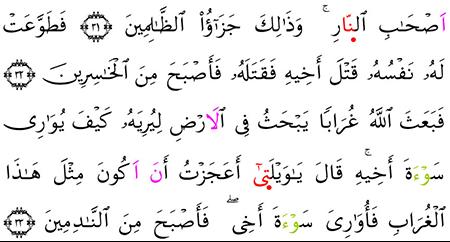 اَصْحَٰبِ ٱلنّ۪ارِ ۚ وَذَٰلِكَ جَزَٰٓؤُا۟ ٱلظَّٰلِمِينَ ۝٣١ فَطَوَّعَتْ
لَهُۥ نَفْسُهُۥ قَتْلَ أَخِيهِ فَقَتَلَهُۥ فَأَصْبَحَ مِنَ ٱلْخَٰسِرِينَ ۝٣٢
فَبَعَثَ ٱللَّهُ غُرَابًا يَبْحَثُ فِى ٱلَارْضِ لِيُرِيَهُۥ كَيْفَ يُوَٰرِى
سَوْءَةَ أَخِيهِ ۚ قَالَ يَٰوَيْلَت۪ىٰٓ أَعَجَزْتُ أَنَ اَكُونَ مِثْلَ هَٰذَا
ٱلْغُرَابِ فَأُوَٰرِىَ سَوْءَةَ أَخِى ۖ فَأَصْبَحَ مِنَ ٱلنَّٰدِمِينَ ۝٣٣